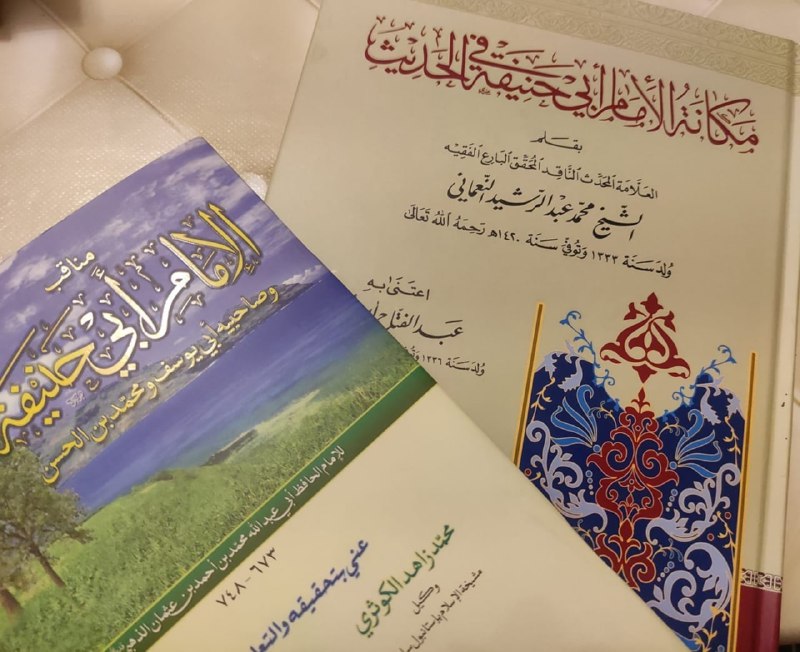 مكانة الإمام أبي حنيفة في الحديث
بقلم
العلامة المحدث الناقد المحقق البارع الفقيه
الشيخ محمد عبد الرشيد النعماني
ولد سنة ١٣٣٣ وتوفي سنة ١٤٢٠ه رحمه الله تعالى
اعتنى به
عبد الفتاح
ولد سنة ١٣٣٦
مناقب
الإمام أبي حنيفة
وصاحبيه أبي يوسف ومحمد بن الحسن
للإمام الحافظ أبي عبد الله محمد بن أحمد بن عثمان الذهبي
٦٧٣ - ٧٤٨
عني بتحقيقه والتعليق
محمد زاهد الكوثري
وكيل
مشيخة الإسلام بإستانبول